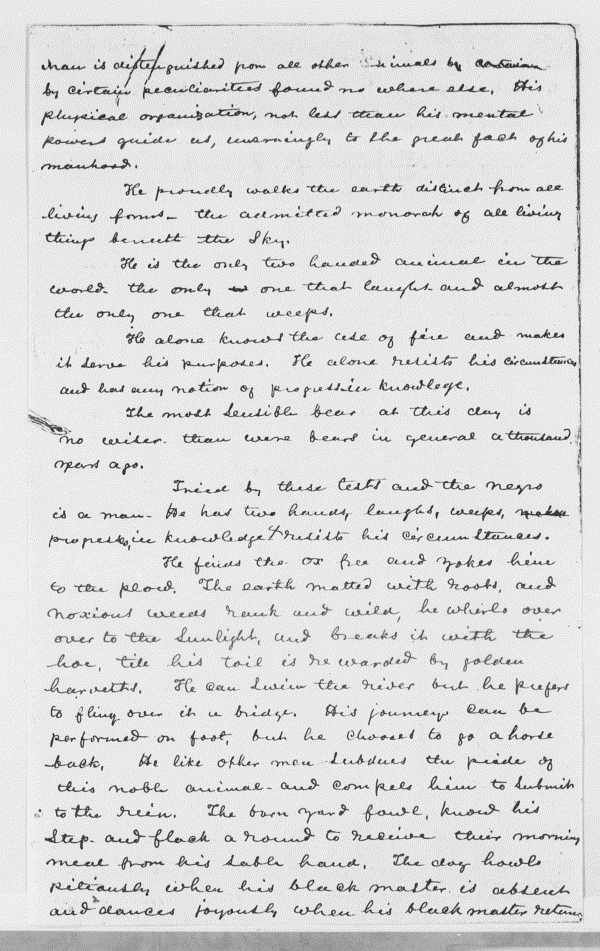 Man is distinguished from all other animals by
by certain peculiarities found no where else. His
physical organization, not less than his mental
powers guide us, unerringly to the great fact of his
manhood.
He proudly walks the earth distinct from all
living forms - the admitted monarch of all living
things beneath the Sky.
He is the only two handed animal in the
world - the only one that laughs - and almost
the only one that weeps.
He alone knows the use of fire and makes
it serve his purposes. He alone resists his circumstances
and has any notion of progress in knowledge.
The most sensible bear at this day is
no wiser than were bears in general a thousand
years ago.
Tried by these tests and the negro
is a man - He has two hands, laughs, weeps,
progresses, in knowledge & resists his circumstances.
He finds the ox free and yokes him
to the plow. The earth matted with roots, and
noxious weeds rank and wild, he whirls over
over to the Sunlight, and breaks it with the
hoe, till his toil is rewarded by golden
harvests. He can swim the river but he prefers
to fling over it a bridge. His journey can be
performed on foot, but he chooses to go a horse
back. He like other men subdues the pride of
this noble animal - and compels him to submit
to the rein. The barn yard fowl, know his
step - and flock around to receive their morning
meal from his sable hand. The dog howls
piteously when his black master is absent
and dances joyously when his black master returns